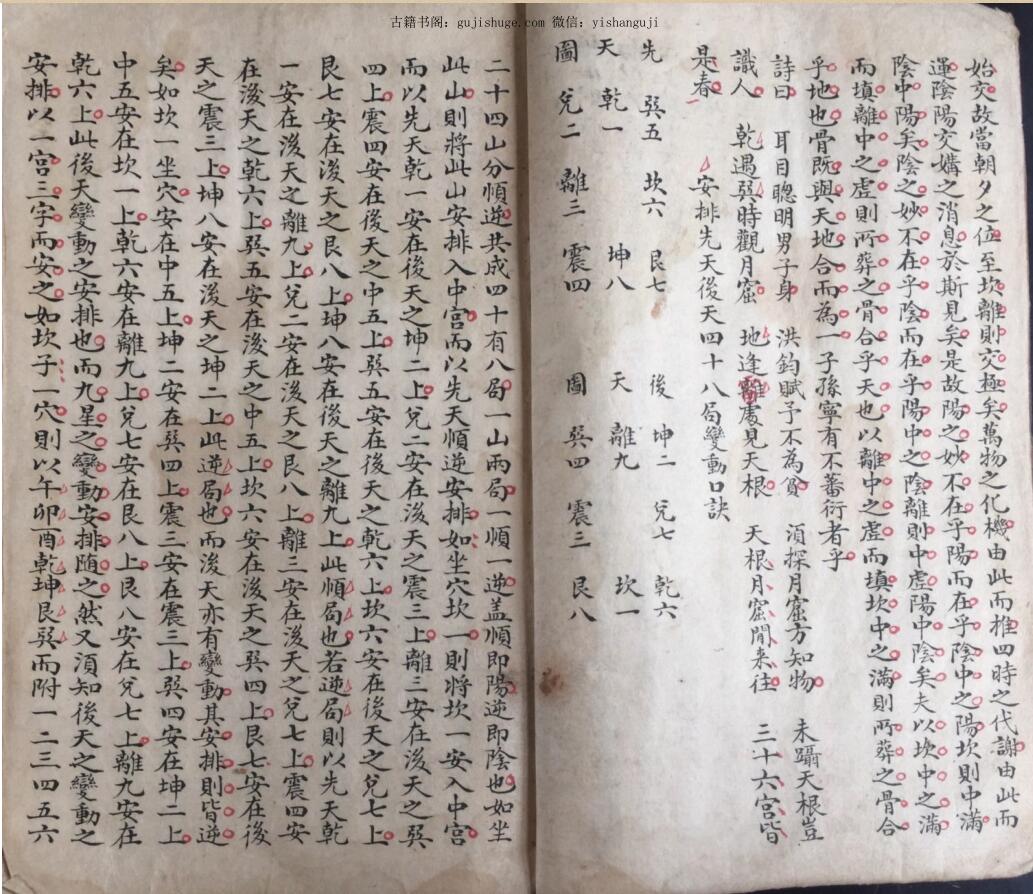 古籍书阁：gujishuge.com 微信：yishanguji
始交故當朝夕之位至坎離則交極矣萬物之化機由此而推四時之代謝由此而
運陰陽交媾之消息於斯見矣是故陽之妙不在乎陽而在乎陰中之陽坎則中滿
陰中陽矣陰之妙不在乎陰而在乎陽中之陰離則中虛陽中陰矣夫以坎中之滿
而填離中之虛則所葬之骨合乎天也以離中之虛而填坎中之滿則所葬之骨合
乎地也骨既與天地合而為一子孫寧有不蕃衍者乎
詩曰 耳目聰明男子身 洪鈞賦予不為貧 須探月窟方知物 未躡天根豈
識人 乾遇巽時觀月窟 地逢離處見天根 天根月窟閒来往 三十六宮皆
是春 安排先天後天四十八局變動口訣
先 巽五 坎六 艮七 後 坤二 兌七 乾六
天 乾一 坤八 天 離九 坎一
圖 兌二 離三 震四 圖 巽四 震三 艮八
二十四山分順逆共成四十有八局一山兩局一順一逆盖順即陽逆即陰也如坐
此山則將此山安排入中宮而以先天順逆安排如坐穴坎一則将坎一安入中宮
而以先天乾一安在後天之坤二上兌二安在後天之震三上離三安在後天之巽
四上震四安在後天之中五上巽五安在後天之乾六上坎六安在後天之兌七上
艮七安在後天之艮八上坤八安在後天之離九上此順局也若逆局則以先天乾
一安在後天之離九上兌二安在後天之艮八上離三安在後天之兌七上震四安
在後天之乾六上巽五安在後天之中五上坎六安在後天之巽四上艮七安在後
天之震三上坤八安在後天之坤二上此逆局也而後天亦有變動其安排則皆逆
矣如坎一坐穴安在中五上坤二安在巽四上震三安在震三上巽四安在坤二上
中五安在坎一上乾六安在離九上兌七安在艮八上艮八安在兌七上離九安在
乾六上此後天變動之安排也而九星之變動安排随之然又須知後天之變動之
安排以一宮三字而安之如坎子一穴則以午卯酉乾坤艮巽而附一二三四五六